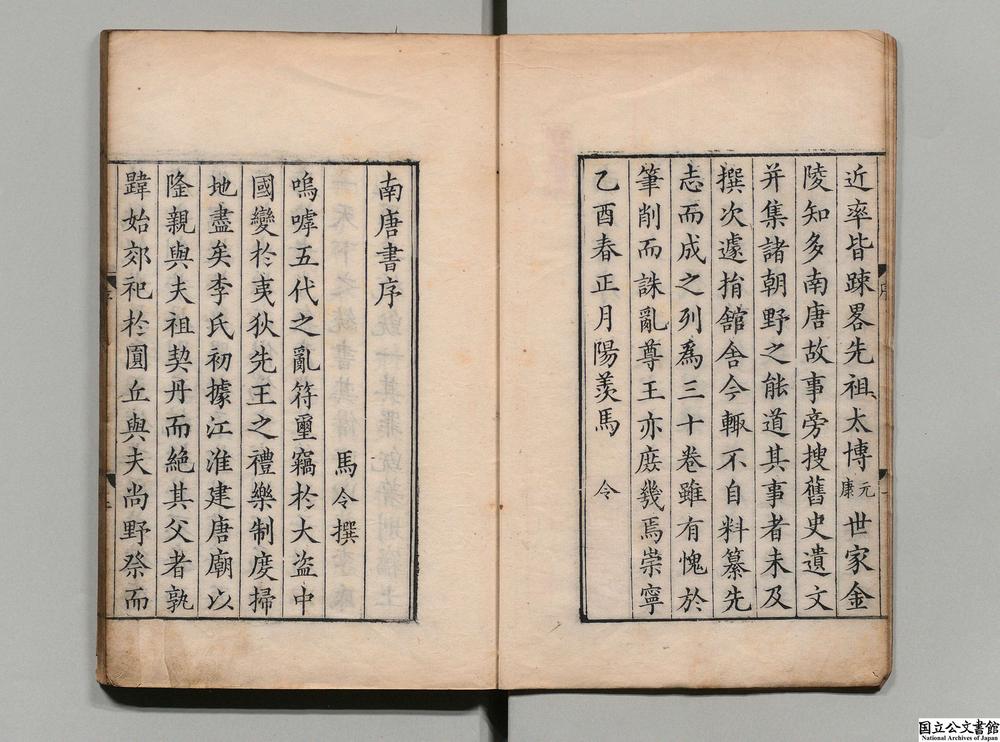 近率皆踈畧先祖太博元康世家金
陵知多南唐故事旁搜舊史遺文
并集諸朝野之能道其事者未及
撰次遽捐舘舍今輙不自料纂先
志而成之列爲三十卷雖有愧於
筆削而誅亂尊王亦庶幾焉崇寧
乙酉春正月陽羨馬 令
南唐書序
馬令撰
嗚嘑五代之亂符璽竊於大盗中
國變於夷狄先王之禮樂制度掃
地盡矣李氏初據江淮建唐廟以
隆親與夫祖契丹而絶其父者孰
韙始郊祀於圓丘與夫尚野祭而
国立公文書館
National Archives of Japan